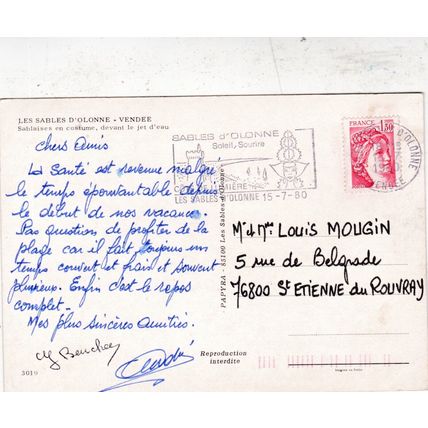 LES SABLES D'OLONNE - VENDEE
Sablaises en costume, devant le jet d'eau
chers Amis
La Santé est revenue malgré
le temps épouvantable depuis
le début de nos vacances.
Pas question de profiter de la
plage car il fait toujours un
temps couvert et frais et souvent
pluvieux. Enfin c'est le repos
complet.
Mes plus sincères amitiés.
3019
SABLES d'OLONNE
Soleil, Sourire
LUMIÈRE
LES SABLES D'OLONNE 15-7-80
FRANCE 1,30
D'OLONNE
VENDEE
PAPYRA - 85100 Les Sables d'Olonne
Mr & Mme Louis MOUGIN
5 rue de Belgrade
76800 St ETIENNE du ROUVRAY
Reproduction
interdite